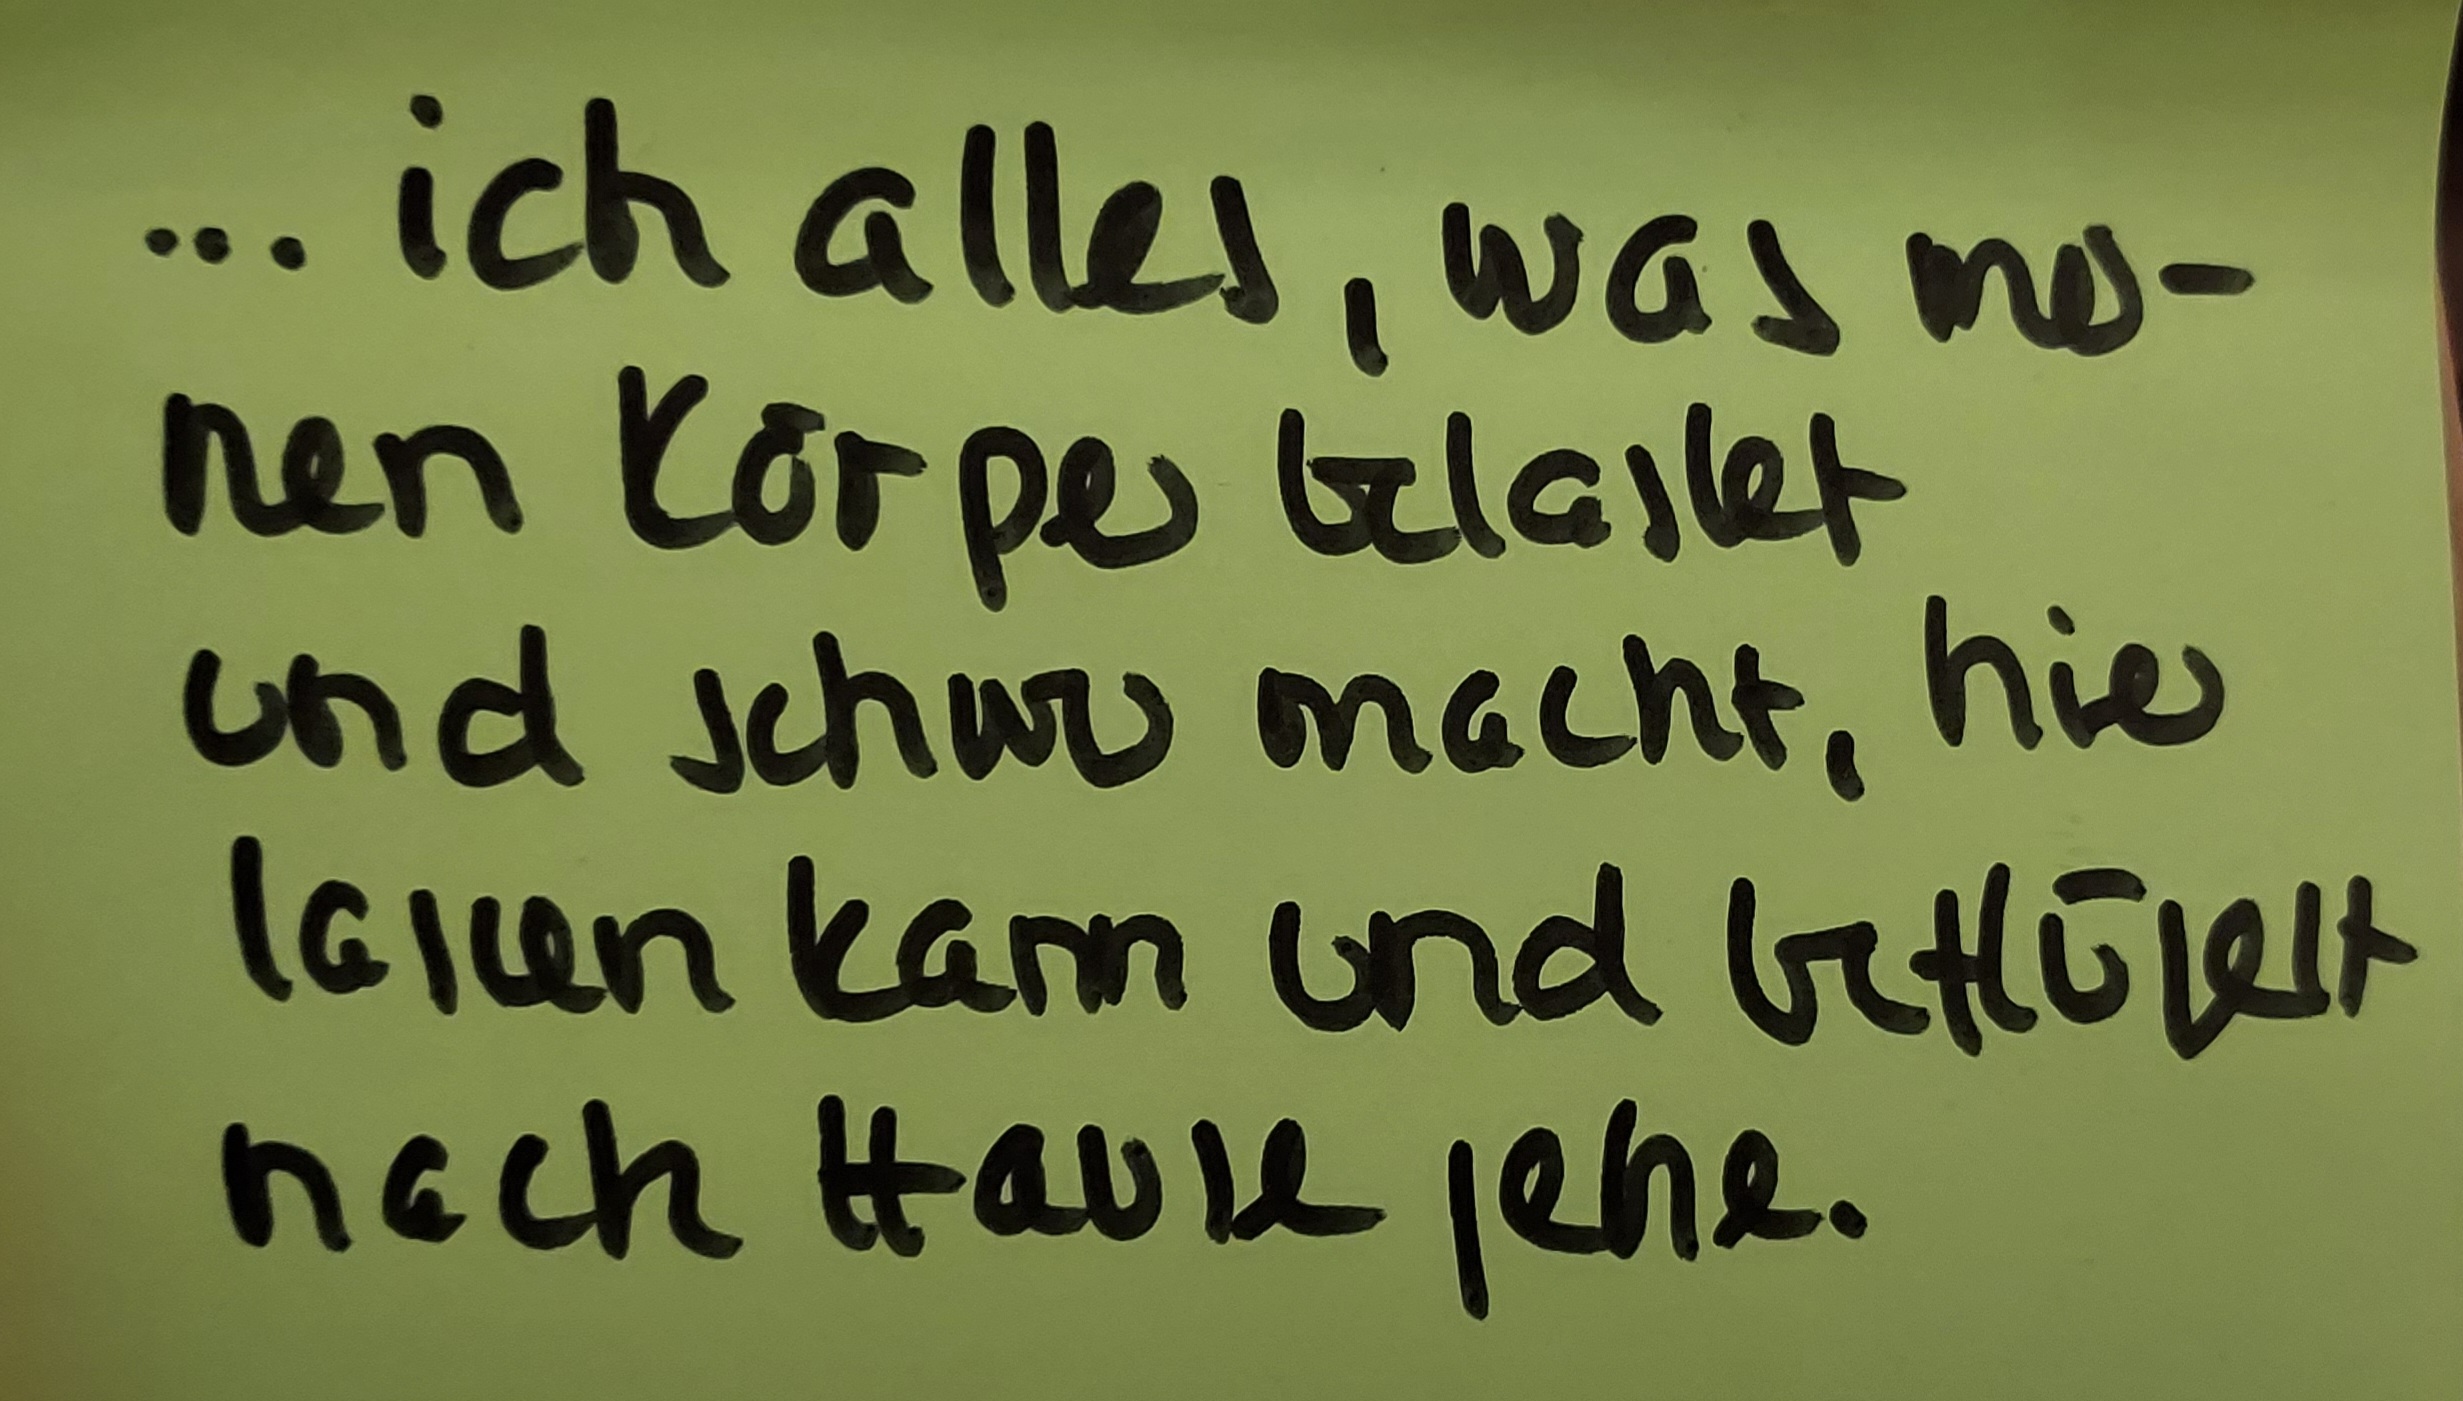 ... ich alles, was mei-
nen Körper belastet
und schwer macht, hier
lassen kann und beflügelt
nach Hause gehe.